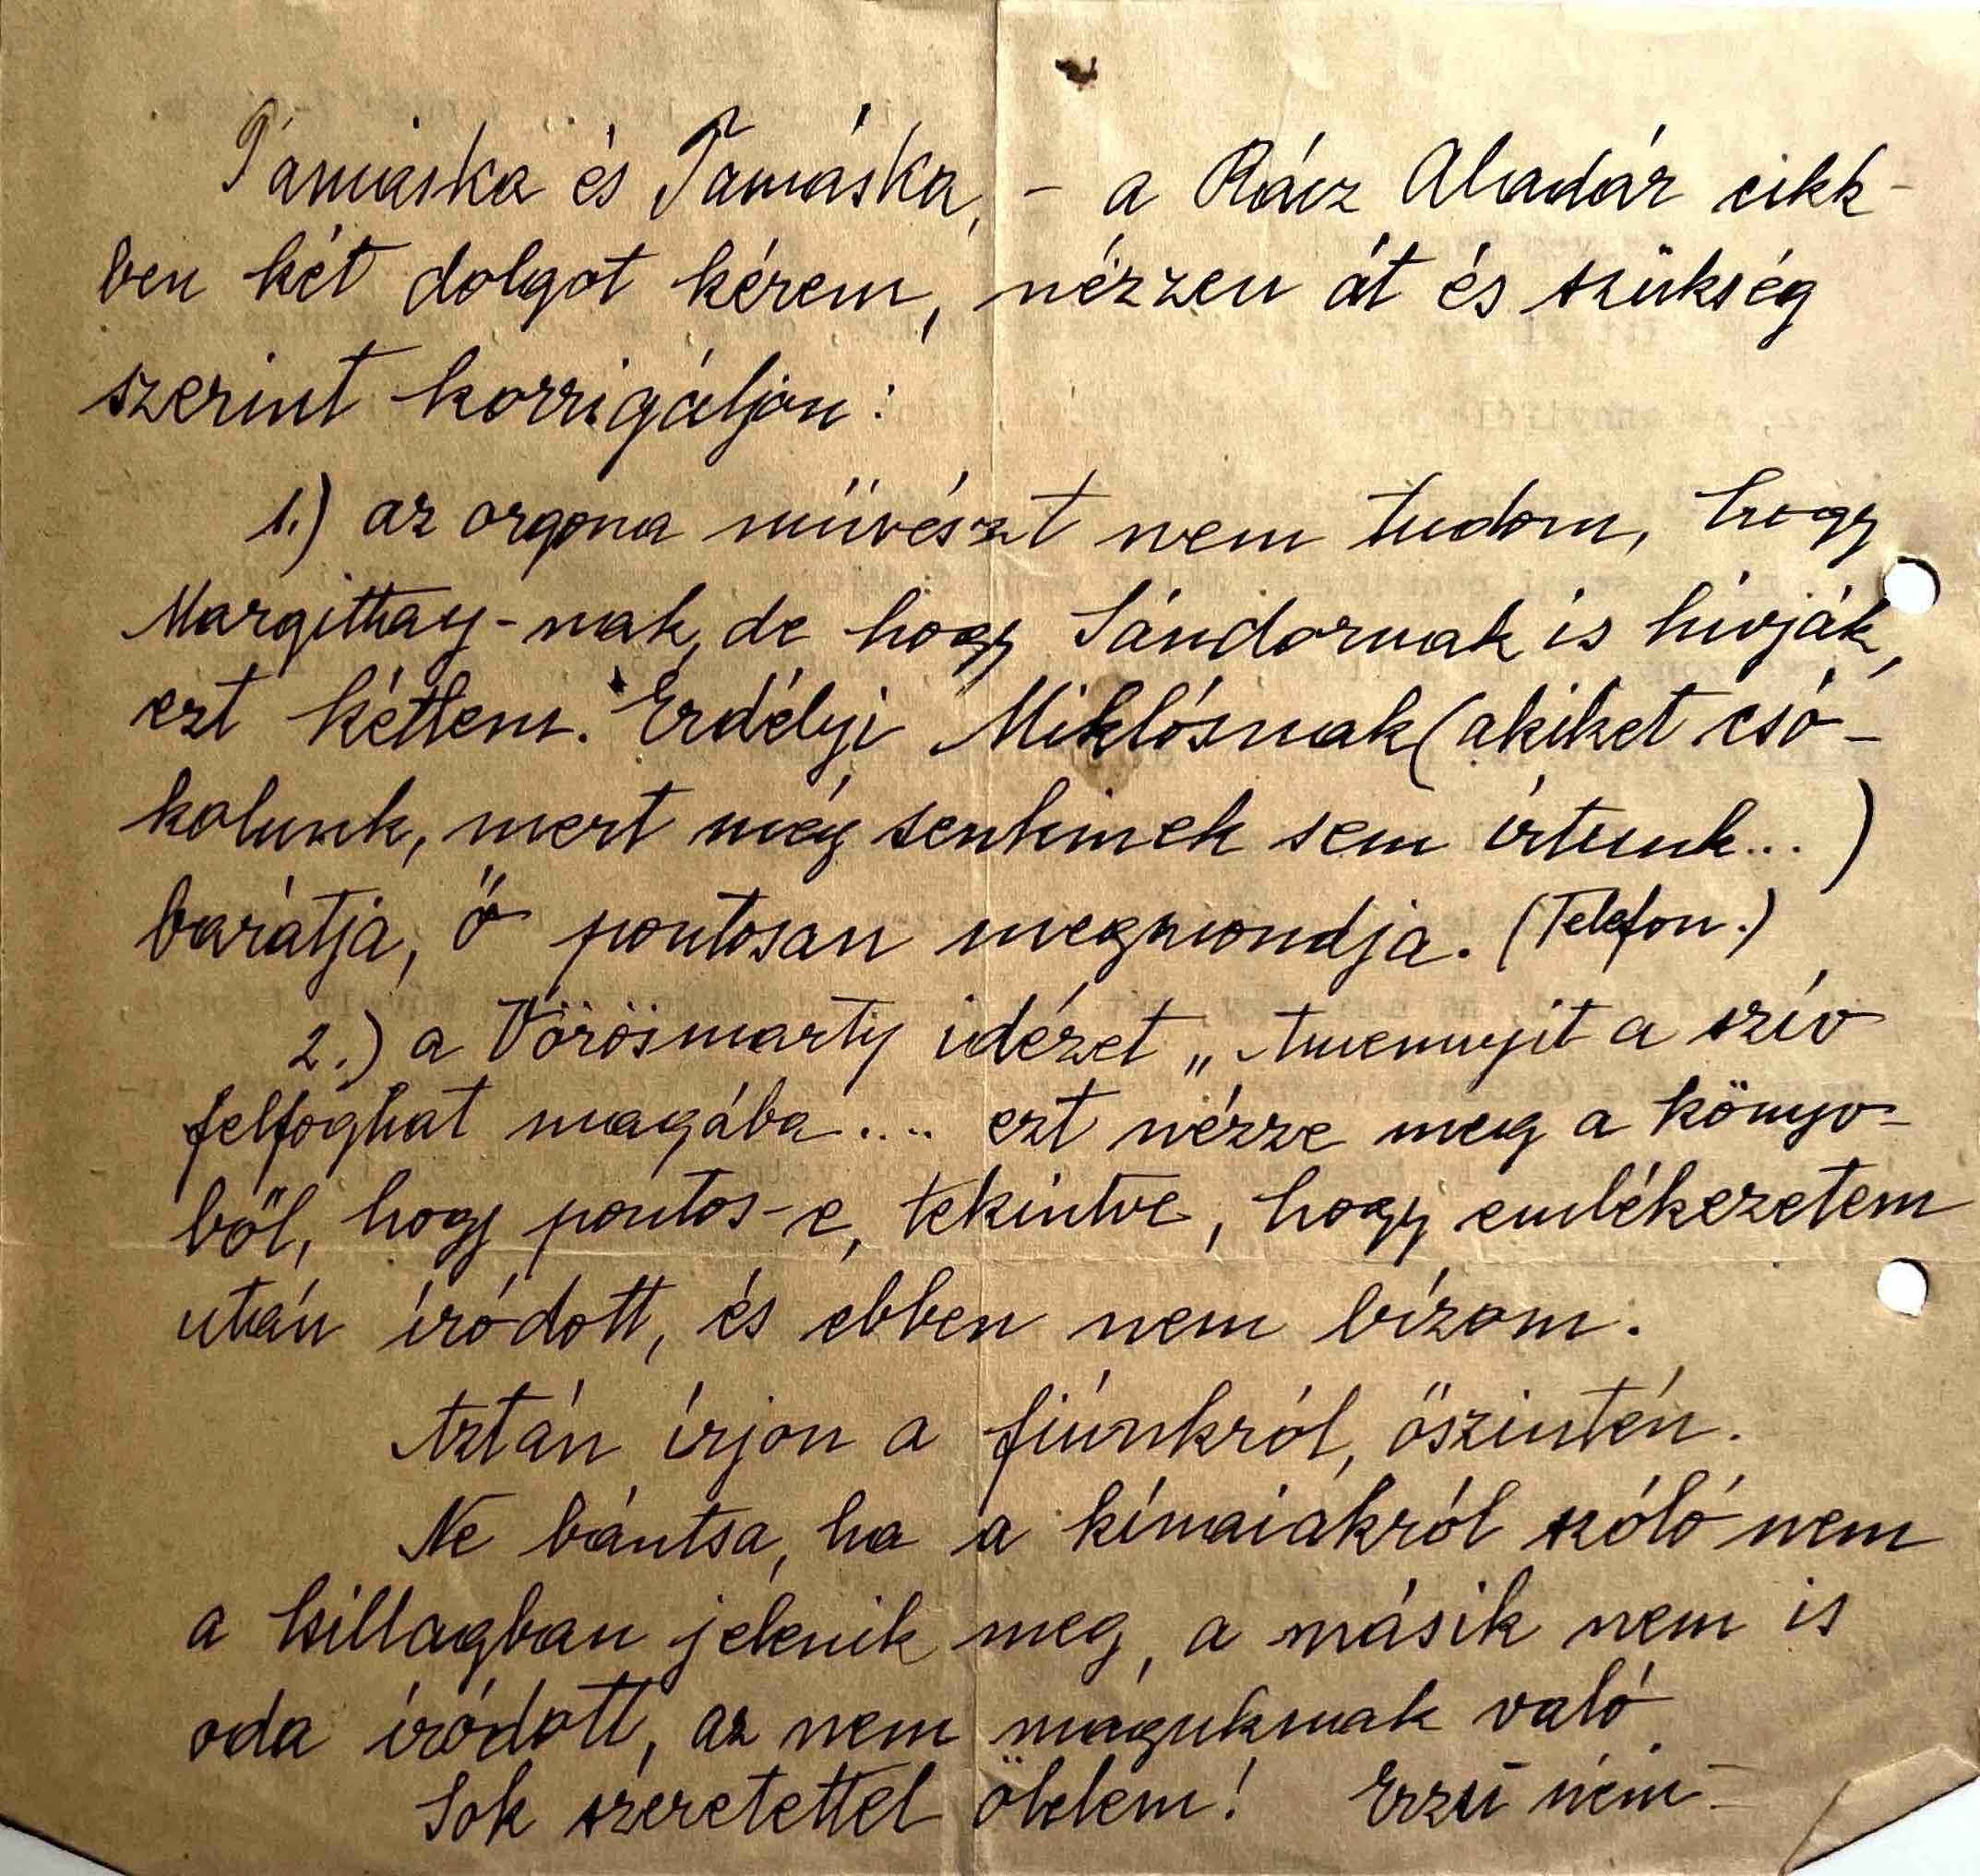 Tamáska és Tamáska, – a Rácz Aladár cikk-
ben két dolgot kérem, nézzen át és szükség
szerint korrigáljon:
1.) az orgona művészt nem tudom, hogy
Margittay-nak, de hogy Sándornak is hívják,
ezt kétlem. Erdélyi Miklósnak (akiket csó-
kolunk, mert még senkinek sem írtunk... )
barátja, ő pontosan megmondja. (Telefon.)
2.) a Vörösmarty idézet „Amennyit a szív
felfoghat magába .... ezt nézze meg a könyv-
ből, hogy pontos-e, tekintve, hogy emlékezetem
után íródott, és ebben nem bízom.
Aztán írjon a fiúnkról, őszintén.
Ne bántsa, ha a kínaiakról szóló nem
a Csillagban jelenik meg, a másik nem is
oda íródott, az nem maguknak való
Sok szeretettel ölelem! Erzsi néni